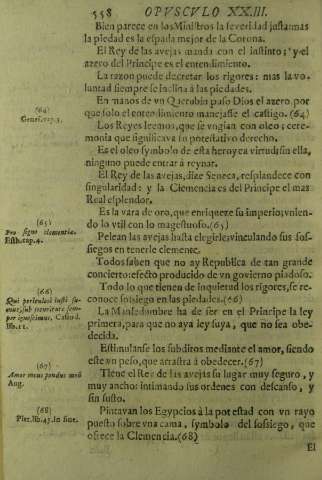 558 OPVSCVLO XX.III.
Bien parece en los Ministros la severidad justa: mas
la piedad es la espada mejor de la Corona.
El Rey de las avejas manda con el instinto; y el
azero del Principe es el entendimiento.
La razon puede decretar los rigores: mas la vo-
luntad siempre se inclina à las piedades.
(64)
Genes. cap. 3.
En manos de vn Querubin puso Dios el azero, por
que solo el entendimiento manejasse el castigo. (64)
Los Reyes leemos, que se vngian con oleo; cere-
monia que significava in potestativo derecho.
Es el oleo symbolo de esta heroyca virtud; sin ella,
ninguno puede entrar á reynar.
El Rey de las avejas, dize Seneca, resplandece con
singularidad: y la Clemencia es del Principe el mas
Real esplendor.
Es la vara de oro, que enriqueze su imperio; vnien-
do lo vtil con lo magestuoso. (65)
(65)
Pro signo clementiæ.
Esth. cap. 4.
Pelean las avejas hasta elegirle; vinculando sus sos-
siegos en tenerle clemente.
Todos saben que no ay Republica de tan grande
concierto: efecto producido de vn govierno piadoso.
Todo lo que tienen de inquietud los rigores, se re-
conoce sossiego en las piedades. (66)
(66)
Qui periculosè iusti su-
mus, sub securitate sem-
per ignoscimus. Casiod.
lib. 11.
La Mansedumbre ha de ser en el Principe la ley
primera, para que no aya ley suya, que no sea obe-
decida.
Estimulanse los subditos mediante el amor, siendo
este vn peso, que arrastra à obedecer. (67)
(67)
Amor meus pondus meũ
Aug.
Tiene el Rey de las avejas su lugar muy seguro, y
muy ancho: intimando sus ordenes con descanso, y
sin susto.
(68)
Pier. lib. 43. in fine.
Pintavan los Egypcios à la potestad con vn rayo
puesto sobre vna cama, symbolo del sossiego, que
ofrece la Clemencia. (68)
El